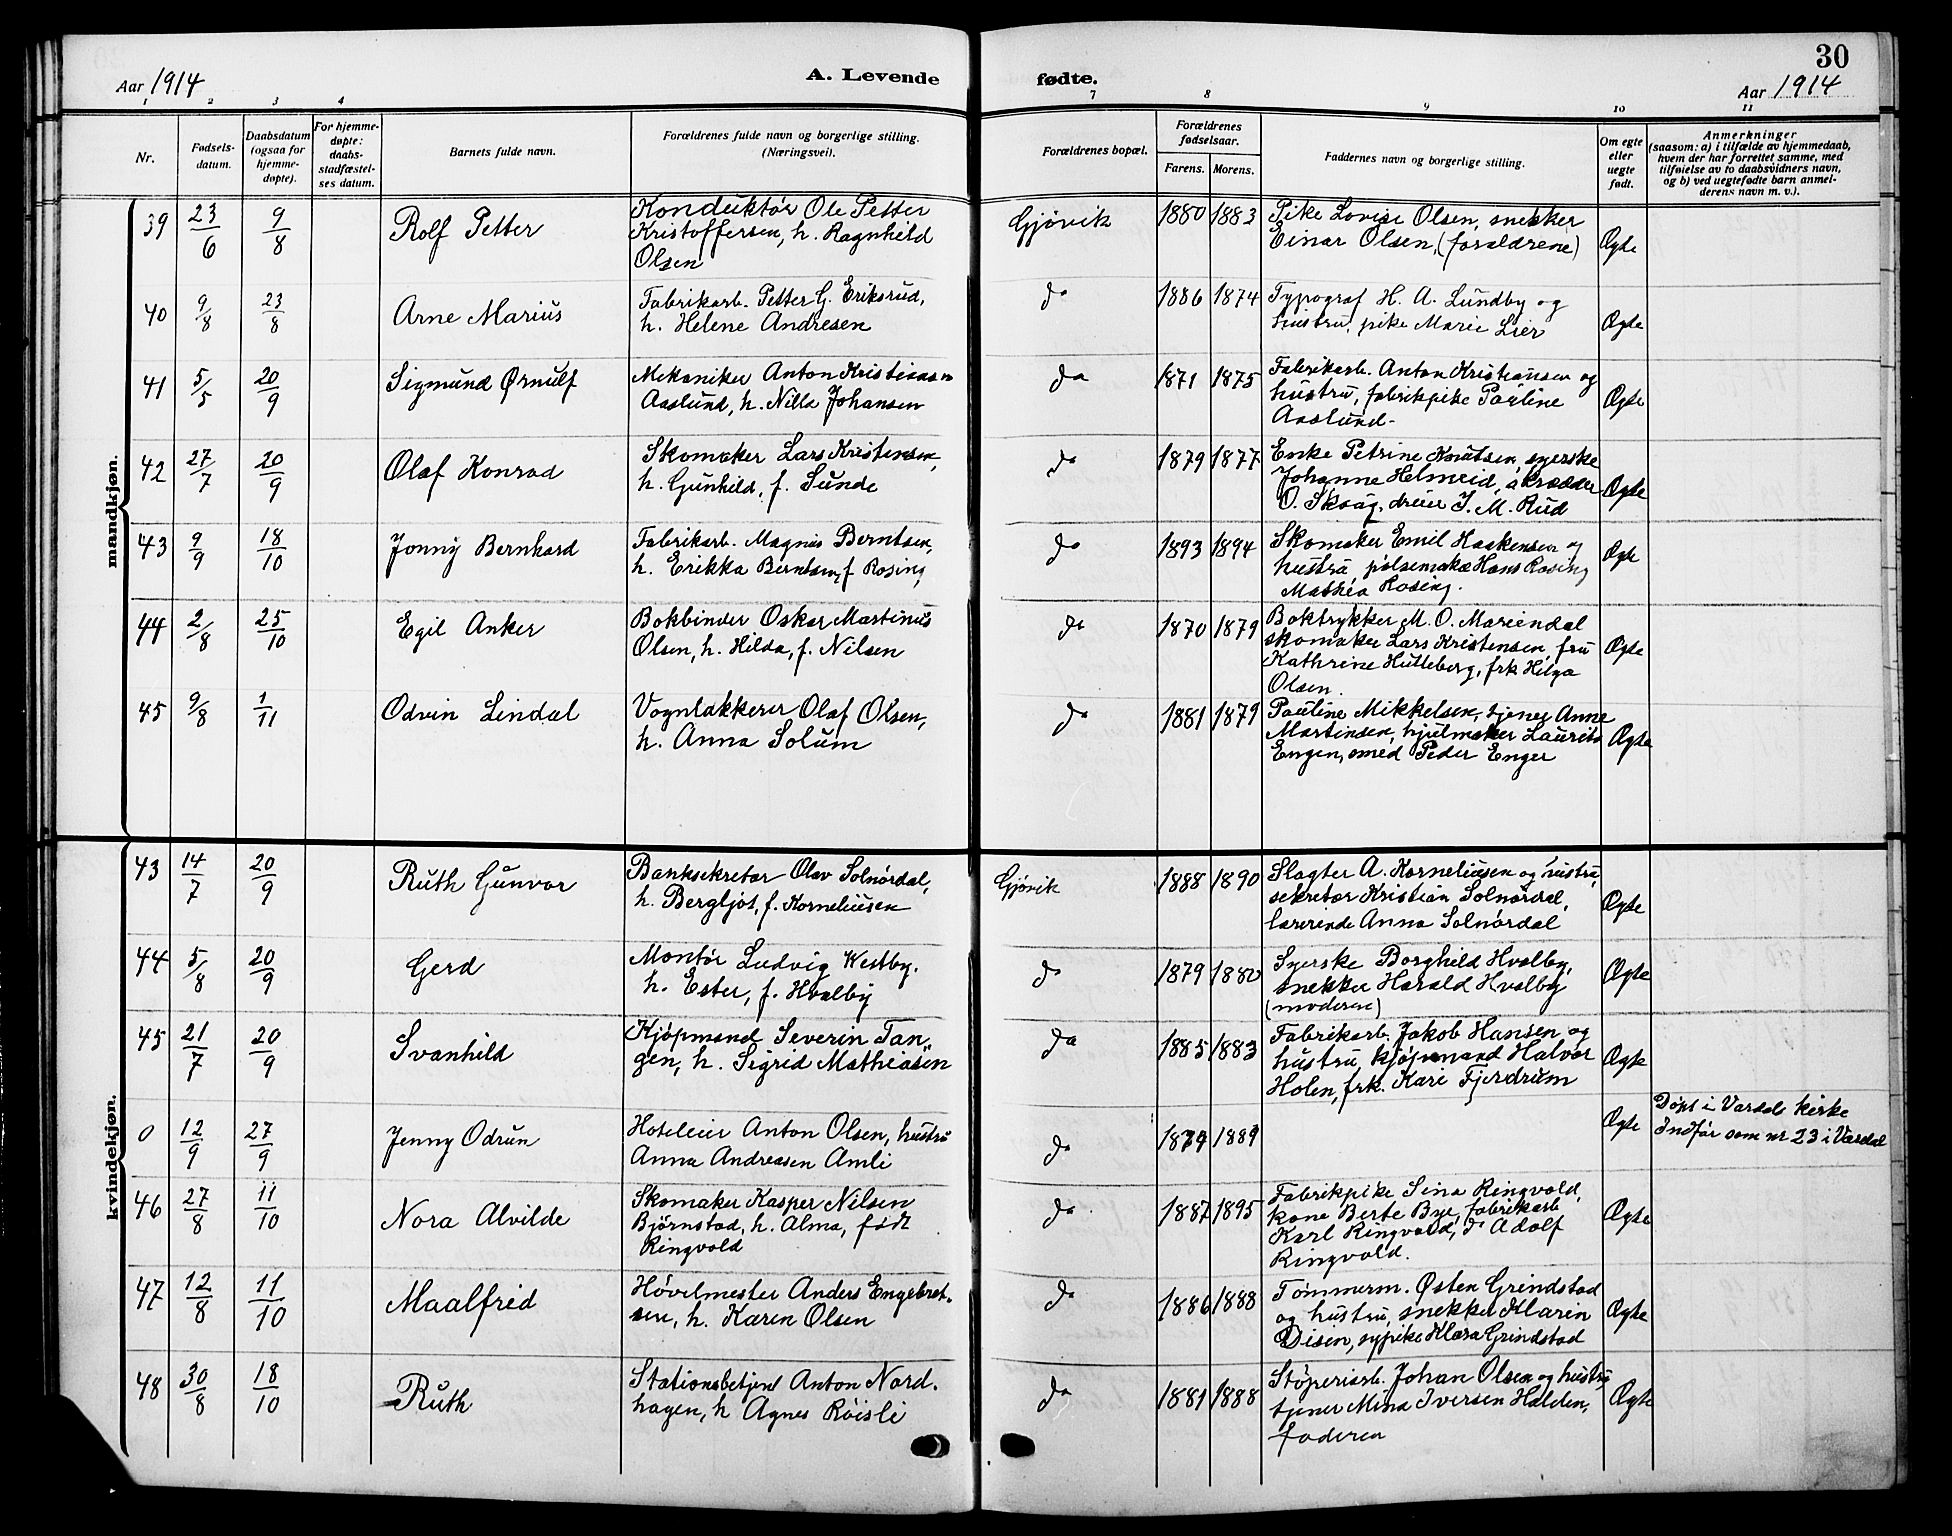 30
Aar 1914
A. Levende fødte.
Aar 1914
1 2 3 4 7 8 9 10 11
Nr.
Fødsels-
datum.
Daabsdatum
(ogsaa for
hjemme-
døpte).
For hjemme-
døpte:
daabs-
stadfæstel-
ses datum.
Barnets fulde navn.
Forældrenes fulde navn og borgerlige stilling.
(Næringsvei).
Forældrenes bopæl.
Forældrenes
fødselsaar.
Farens. Morens.
Faddernes navn og borgerlige stilling.
Om egte
eller
uegte
født.
Anmerkninger
(saasom: a) i tilfælde av hjemmedaab,
hvem der har forrettet samme, med
tilføielse av to daabsvidners navn,
og b) ved uegtefødte barn anmel-
derens navn m. v.).
mandkjøn.
39 23/6 9/8 Rolf Petter
Konduktør Ole Petter
Kristoffersen, h. Ragnhild
Olsen
Gjøvik 1880 1883
Pike Lovise Olsen, snekker
Einar Olsen, (forældrene)
Ægte
40 9/8 23/8 Arne Marius
Fabrikarb. Petter G. Eriksrud,
h. Helene Andresen
do 1886 1874
Typograf H. A. Lundby og
hustru, pike Marie Lier
Ægte
41 5/5 20/9 Sigmund Ørnulf
Mekaniker Anton Kristiansen
Aaslund, h. Nilla Johansen
do 1871 1875
Fabrikarb. Anton Kristiansen og
hustru, fabrikpike Pauline
Aaslund.
Ægte
42 27/7 20/9 Olaf Konrad
Skomaker Lars Kristensen,
h. Gunhild, f. Sunde
do 1879 1877
Enke Petrine Knutsen, syerske
Johanne Helmeid, skrædder
O. Skaug, dreier J. M. Rud
Ægte
43 9/9 18/10 Jonny Bernhard
Fabrikarb. Magnus Berntsen,
h. Erikka Berntsen, f. Rosing
do 1893 1894
Skomaker Emil Haakensen og
hustru pølsemak. Hans Rosing
Mathea Rosing.
Ægte
44 2/8 25/10 Egil Anker
Bokbinder Oskar Martinus
Olsen, h. Hilda, f. Nilsen
do 1870 1879
Boktrykker M. O. Mariendal
skomaker Lars Kristensen, fru
Kathrine Hutteberg, frk Helga
Olsen.
Ægte
45 9/8 1/11 Odvin Lindal
Vognlakkerer Olaf Olsen,
h. Anna Solum
do 1881 1879
Pauline Mikkelsen, tjener Anne
Martinsen, hjulmaker Laurits
Engen, smed Peder Enger
Ægte
kvindekjøn.
43 14/7 20/9 Ruth Gunvor
Banksekretær Olav Solnørdal,
h. Bergljot, f. Korneliusen
Gjøvik 1888 1890
Slagter A. Korneliusen og hustru,
sekretær Kristian Solnørdal,
lærerinde Anna Solnørdal
Ægte
44 5/8 20/9 Gerd
Montør Ludvig Westby.
h. Ester, f. Hvalby
do 1879 1880
Syerske Borghild Hvalby,
snekker Harald Hvalby
(moderen)
Ægte
45 21/7 20/9 Svanhild
Kjøpmand Severin Tan-
gen, h. Sigrid Mathiasen
do 1885 1883
Fabrikarb. Jakob Hansen og
hustru, kjøpmand Halvor
Holen, frk. Kari Fjerdrum
Ægte
0 12/9 27/9 Jenny Odrun
Hoteleier Anton Olsen, hustru
Anna Andreasen Amli
do 1879 1889
Ægte
Døpt i Vardal kirke
Indfør som nr 23 i Vardal
46 27/8 11/10 Nora Alvilde
Skomaker Kasper Nilsen
Bjørnstad, h. Alma, født
Ringvold
do 1887 1895
Fabrikpike Sina Ringvold,
kone Berte Bye, fabrikarb
Karl Ringvold, do Adolf
Ringvold.
Ægte
47 12/8 11/10 Maalfrid
Høvelmester Anders Engebret-
sen, h. Karen Olsen
do 1886 1888
Tømmerm. Østen Grindstad
og hustru, snekker Klarin
Disen, sypike Klara Grindstad
Ægte
48 30/8 18/10 Ruth
Stationsbetjent Anton Nord-
hagen, h Agnes Røisli
do 1881 1888
Støperiarb. Johan Olsen og hustru
tjener Mina Iversen Halden,
faderen
Ægte